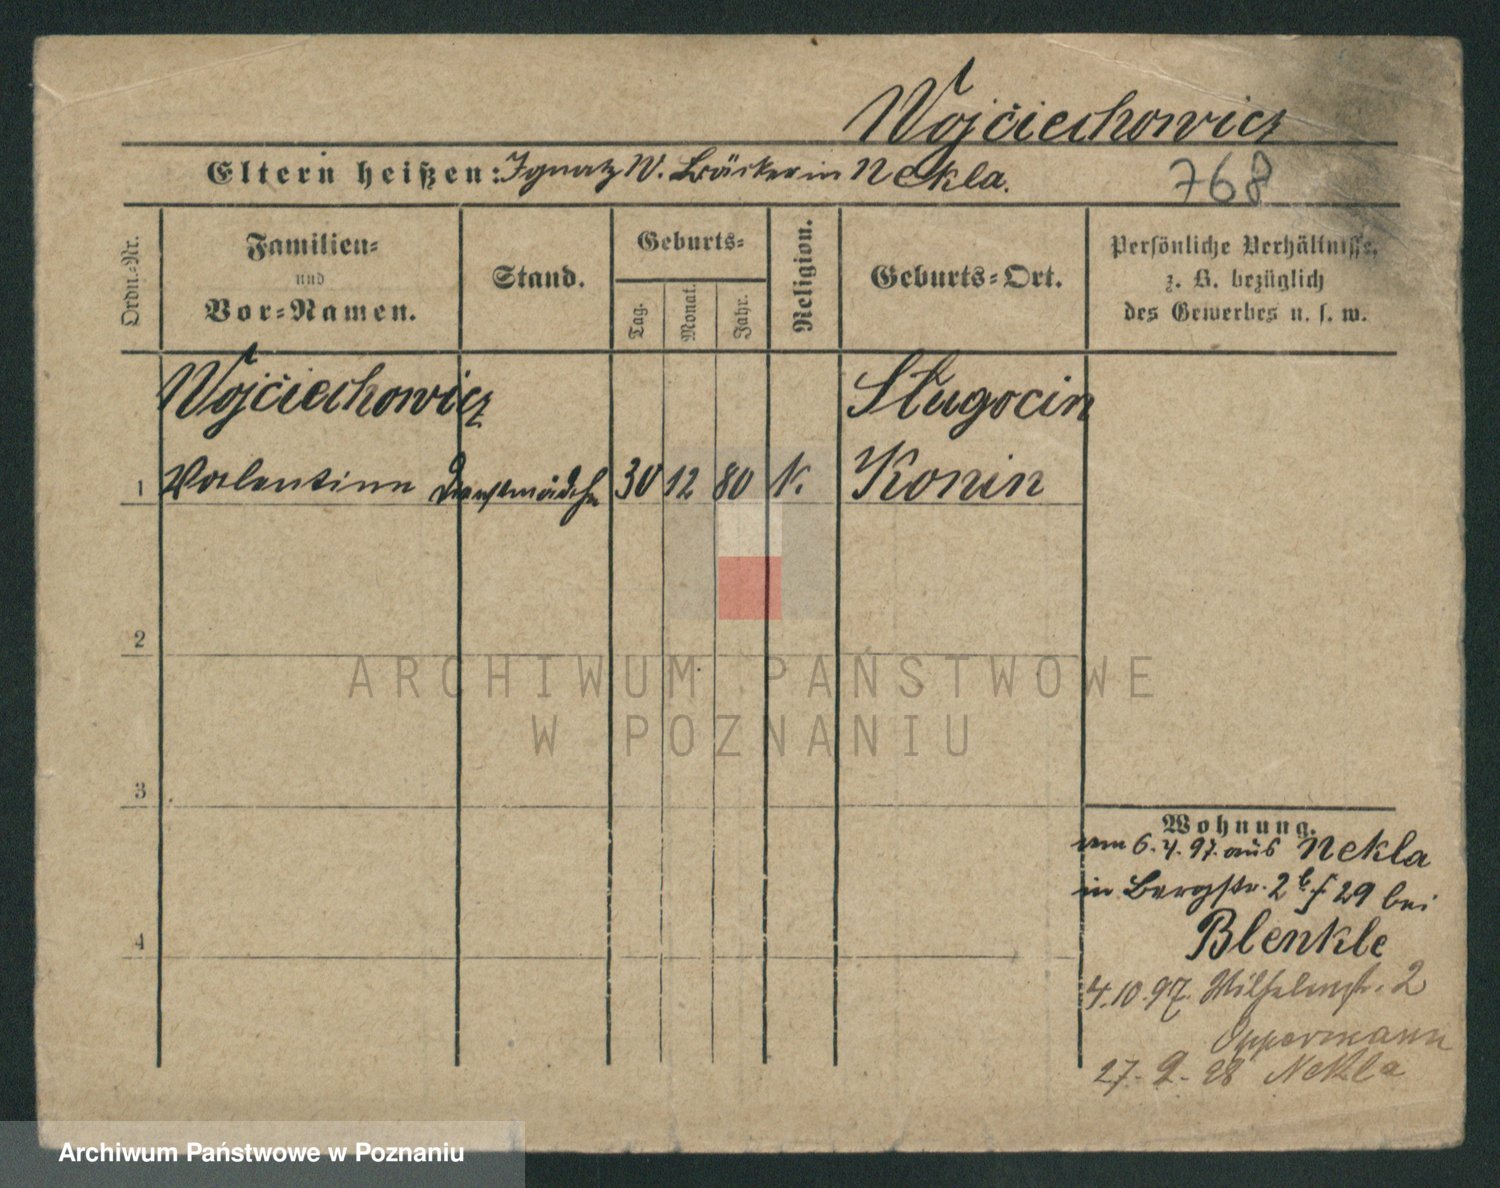 Wojciechowicz
Eltern heißen: Ignatz W. Bäcker in Nekla.
768
Ordn.-Nr.
Familien-
und
Vor-Namen.
Stand.
Geburts-
Tag.
Monat.
Jahr.
Religion.
Geburts-Ort.
Persönliche Verhältnisse,
z. B. bezüglich
des Gewerbes u. s. w.
Wojciechowicz
Sługocin
1 Valentine Dienstmädchen 30 12 80 K. Konin
2
3
4
ARCHIWUM PAŃSTWOWE
W POZNANIU
Wohnung.
vom 6.4.97. aus Nekla
in Bergstr. 2b f 29 bei
Blenkle
4.10.97. Wilhelmstr. 2
Oppermann
27.9.98 Nekla
Archiwum Państwowe w Poznaniu